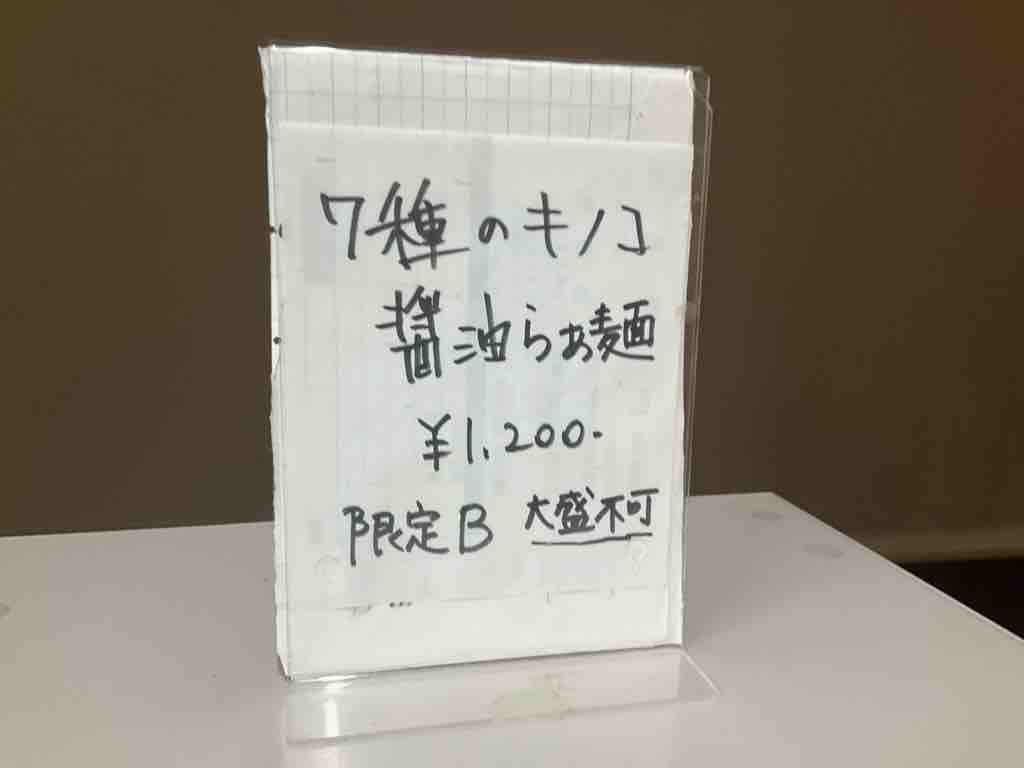 7種のキノコ
醤油らぁ麺
¥1,200-
限定B 大盛不可